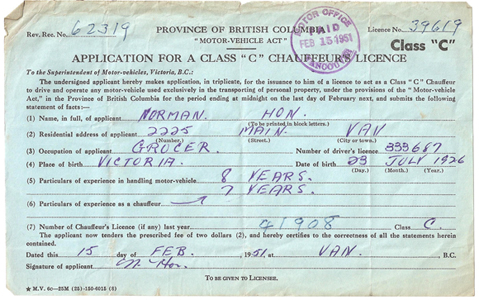 Rev. Rec. No. 62319
PROVINCE OF BRITISH COLUMBIA
"MOTOR-VEHICLE ACT"
Licence No. 39619
MOTOR OFFICE
PAID
FEB 15 1951
Class "C"
APPLICATION FOR A CLASS "C" CHAUFFEUR'S LICENCE
To the Superintendent of Motor-vehicles, Victoria, B.C.:
The undersigned applicant hereby makes application, in triplicate, for the issuance to him of a licence to act as a Class "C" Chauffeur
to drive and operate any motor-vehicle used exclusively in the transporting of personal property, under the provisions of the "Motor-vehicle
Act," in the Province of British Columbia for the period ending at midnight on the last day of February next, and submits the following
statement of facts:—
(1) Name, in full, of applicant NORMAN HON.
(To be printed in block letters.)
(2) Residential address of applicant 2225 MAIN VAN
(Number.) (Street.) (City or town.)
(3) Occupation of applicant GROCER. Number of driver's licence 333687
(4) Place of birth VICTORIA. Date of birth 23 JULY 1926
(Day.) (Month.) (Year.)
(5) Particulars of experience in handling motor-vehicle 8 YEARS.
7 YEARS.
(6) Particulars of experience as a chauffeur
(7) Number of Chauffeur's Licence (if any) last year 41908 Class C.
The applicant now tenders the prescribed fee of two dollars (2), and hereby certifies to the correctness of all the statements herein
contained.
Dated this 15 day of FEB. , 1951, at VAN. , B.C.
Signature of applicant N. Hon.
TO BE GIVEN TO LICENSEE.
★ M.V. 6c—25M (25)-150-6015 (8)